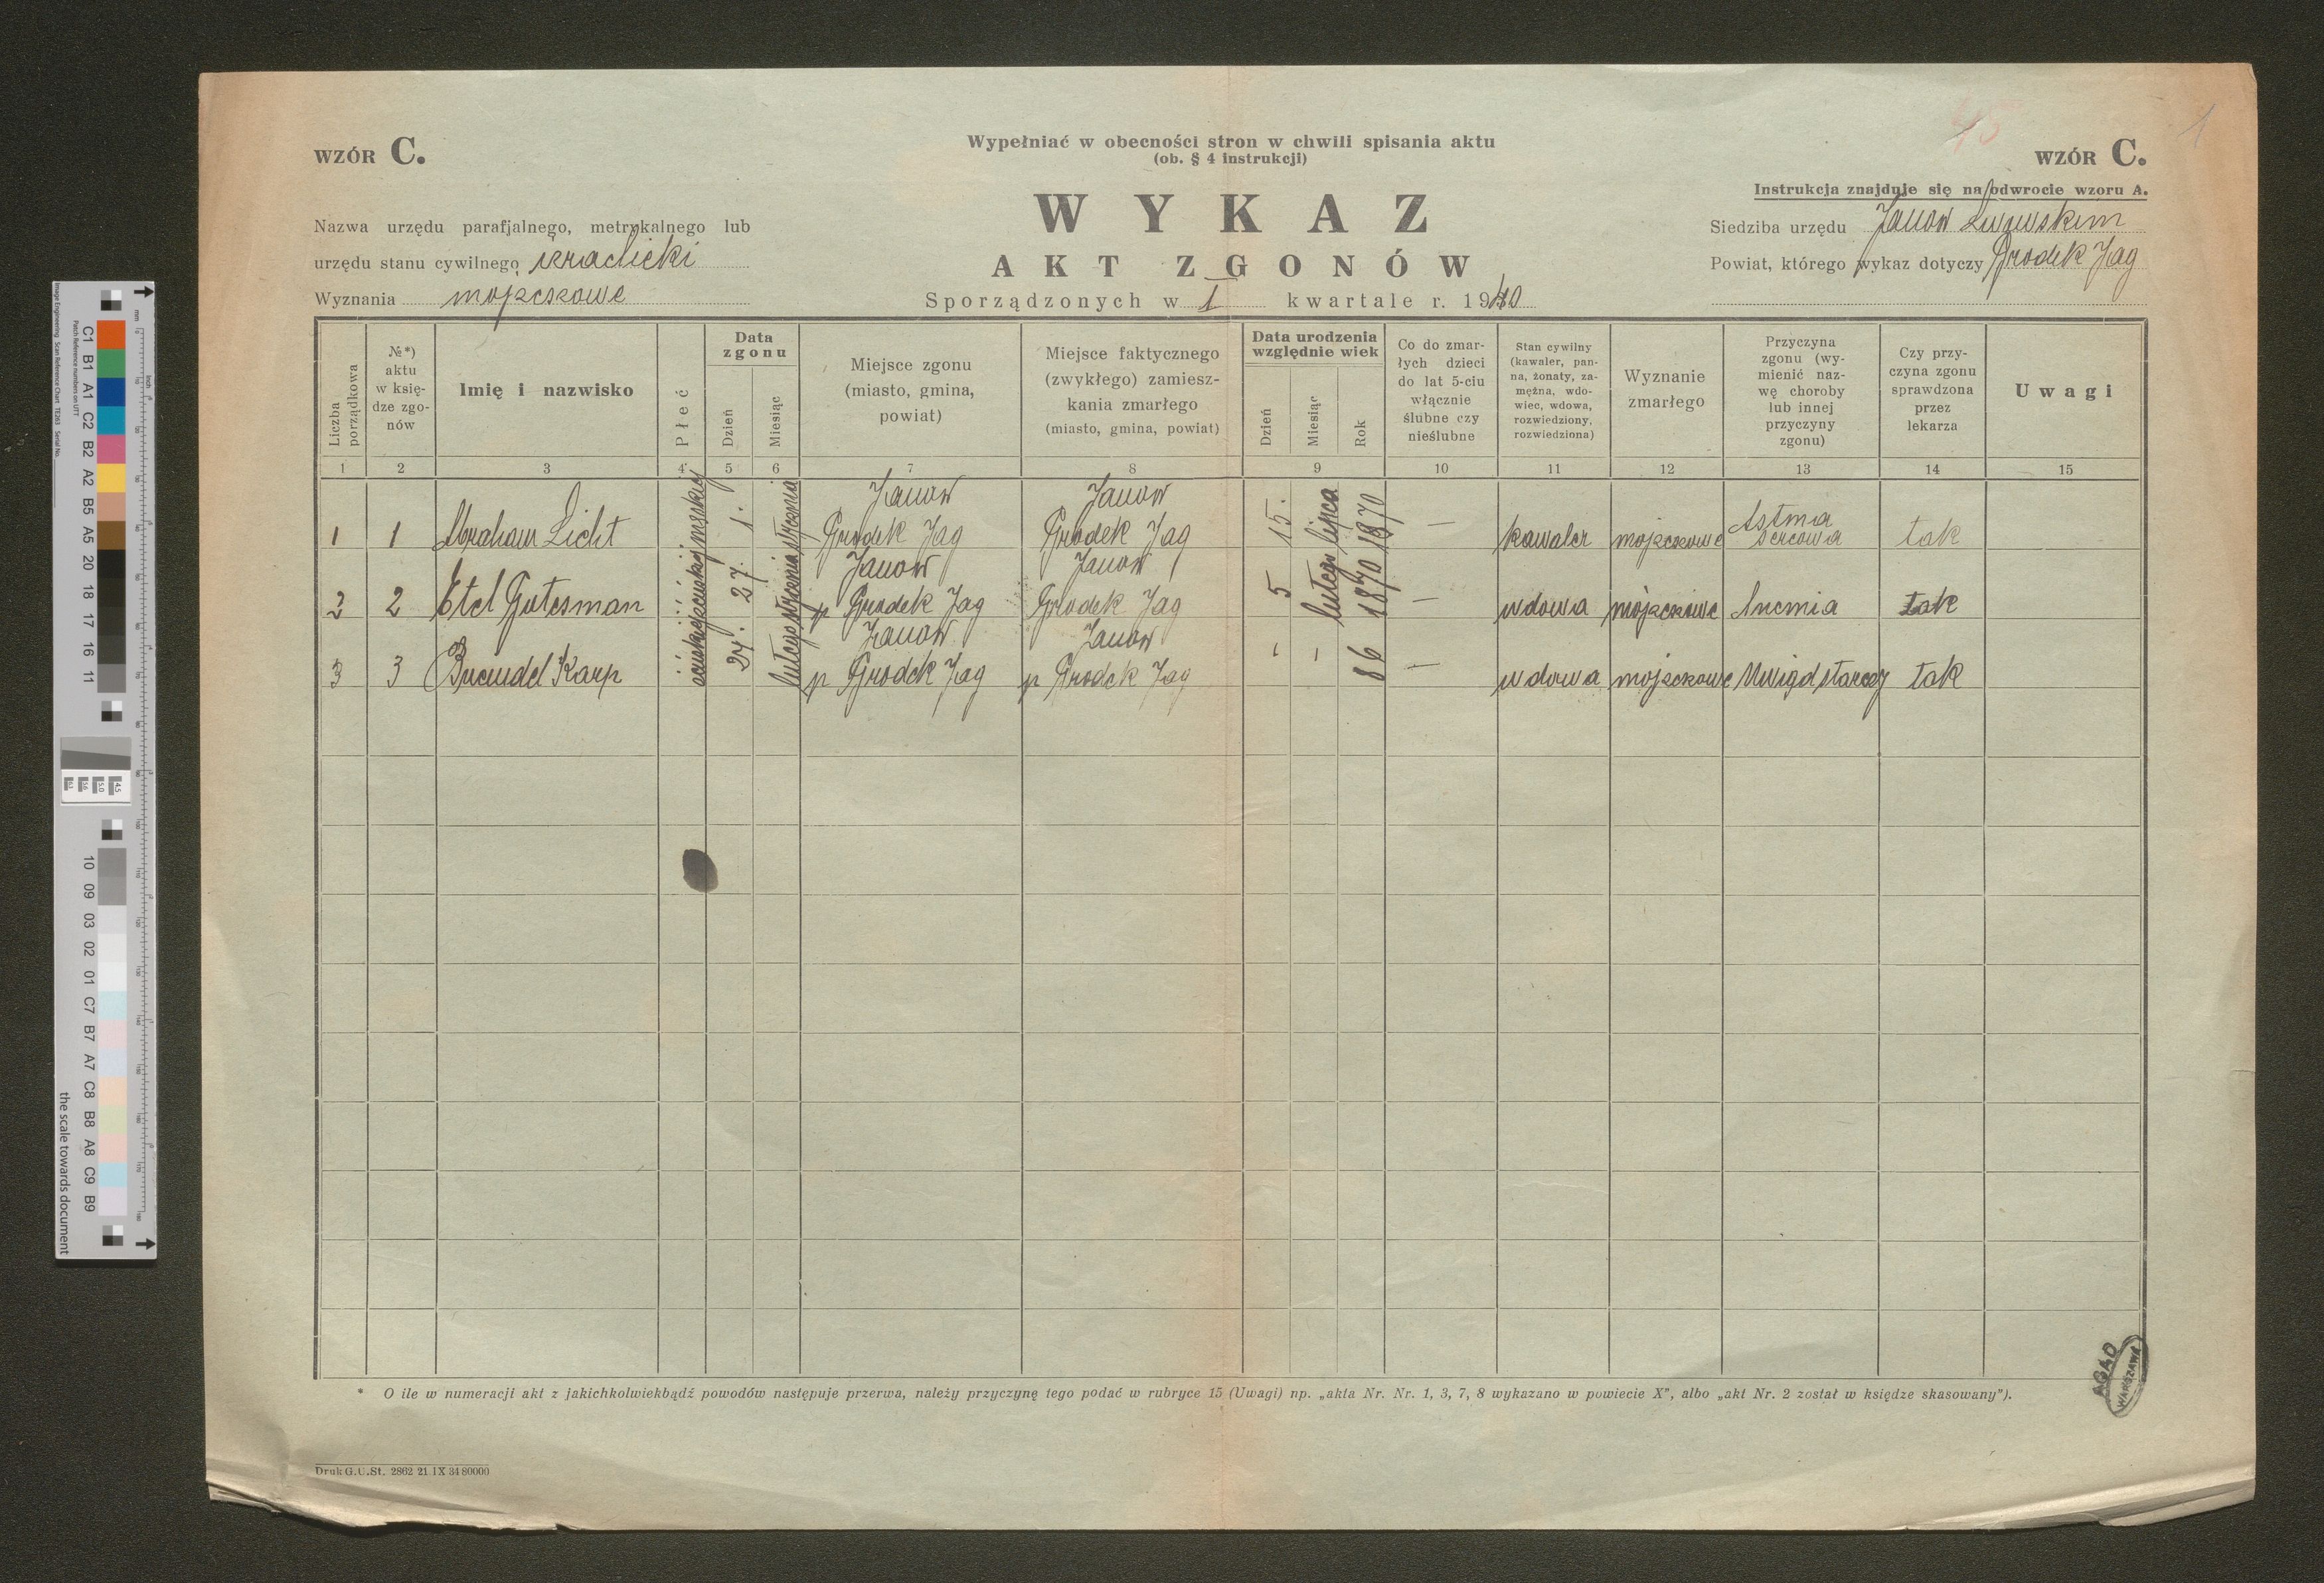 45
1
WZÓR C.
Wypełniać w obecności stron w chwili spisania aktu
(ob. § 4 instrukcji)
WZÓR C.
Instrukcja znajduje się na odwrocie wzoru A.
WYKAZ
AKT ZGONÓW
Sporządzonych w I kwartale r. 1940
Nazwa urzędu parafjalnego, metrykalnego lub
urzędu stanu cywilnego izraelicki
Wyznania mojżeszowe
Siedziba urzędu Janow Lwowskim
Powiat, którego wykaz dotyczy Grodek Jag
Liczba porządkowa
№*) aktu w księdze zgonów
Imię i nazwisko
Płeć
Data zgonu
Dzień
Miesiąc
Miejsce zgonu
(miasto, gmina,
powiat)
Miejsce faktycznego
(zwykłego) zamiesz-
kania zmarłego
(miasto, gmina, powiat)
Data urodzenia
względnie wiek
Dzień
Miesiąc
Rok
Co do zmar-
łych dzieci
do lat 5-ciu
włącznie
ślubne czy
nieślubne
Stan cywilny
(kawaler, pan-
na, żonaty, za-
mężna, wdo-
wiec, wdowa,
rozwiedziony,
rozwiedziona)
Wyznanie
zmarłego
Przyczyna
zgonu (wy-
mienić naz-
wę choroby
lub innej
przyczyny
zgonu)
Czy przy-
czyna zgonu
sprawdzona
przez
lekarza
Uwagi
1 2 3 4 5 6 7 8 9 10 11 12 13 14 15
1 1 Abraham Licht męskiej 1. stycznia Janow Grodek Jag Janow Grodek Jag 15. lipca 1870 — kawaler mojżeszowe Astma sercowa tak
2 2 Etel Gutesman żeńskiej 27. stycznia Janow p Grodek Jag Janow Grodek Jag 5 lutego 1870 — wdowa mojżeszowe Anemia tak
3 3 Breindel Karp żeńskiej 24. lutego Janow p Grodek Jag Janow p Grodek Jag 86 — wdowa mojżeszowe Uwiąd starczy tak
* O ile w numeracji akt z jakichkolwiekbądź powodów następuje przerwa, należy przyczynę tego podać w rubryce 15 (Uwagi) np. „akta Nr. Nr. 1, 3, 7, 8 wykazano w powiecie X”, albo „akt Nr. 2 został w księdze skasowany”).
Druk G.U.St. 2862 21 IX 34 80000
AGAD
WARSZAWA
C1 B1 A1 C2 B2 A2 B5 A5 20 18 17 16 11
10 09 03 02 01 C7 B7 A7 C8 B8 A8 C9 B9
the scale towards document